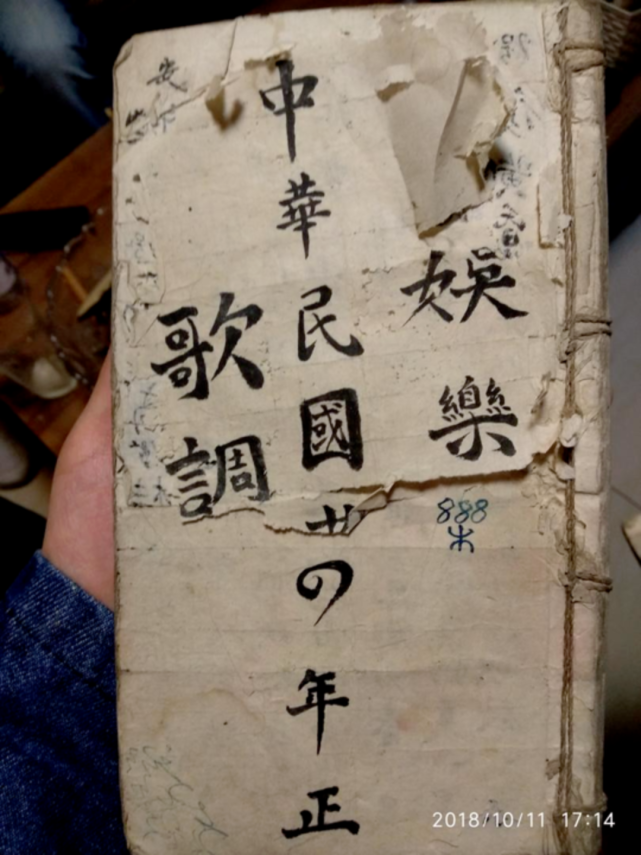 娱樂
888
木
中華民國廿の年正
歌調
2018/10/11 17:14